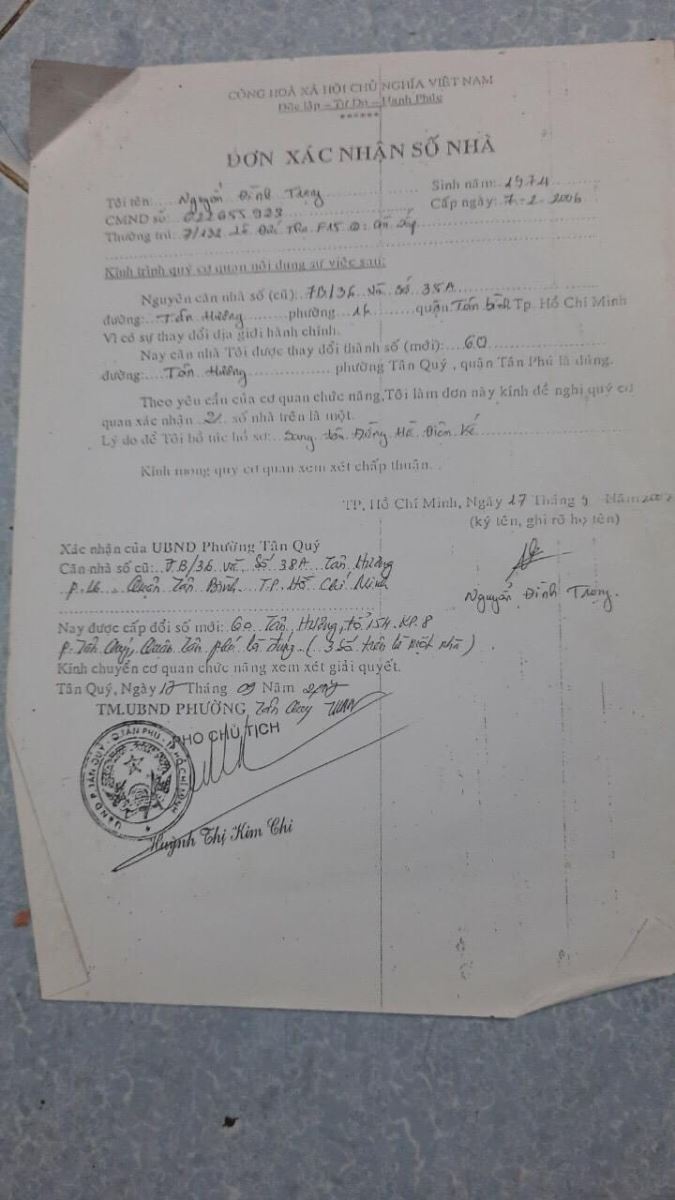 CỘNG HOÀ XÃ HỘI CHỦ NGHĨA VIỆT NAM
Độc lập – Tự Do – Hạnh Phúc
******
ĐƠN XÁC NHẬN SỐ NHÀ
Tôi tên: Nguyễn Đình Trọng Sinh năm: 1974
CMND số: 022655923 Cấp ngày: 7-2-2006
Thường trú: 7/132 Lê Đức Thọ F15 Q: Gò Vấp
Kính trình quý cơ quan nội dung sự việc sau:
Nguyên căn nhà số (cũ): 7B/36 và số 38A
đường: Tân Hương phường 16 quận Tân bình Tp. Hồ Chí Minh
Vì có sự thay đổi địa giới hành chính.
Nay căn nhà Tôi được thay đổi thành số (mới): 60
đường: Tân Hương phường Tân Quý , quận Tân Phú là đúng.
Theo yêu cầu của cơ quan chức năng,Tôi làm đơn này kính đề nghị quý cơ
quan xác nhận 2 số nhà trên là một.
Lý do để Tôi bổ túc hồ sơ: Sang tên Đồng Hồ Điện Kế
Kính mong quý cơ quan xem xét chấp thuận.
TP, Hồ Chí Minh, Ngày 17 Tháng 9 Năm
(ký tên, ghi rõ họ tên)
Xác nhận của UBND Phường Tân Quý
Căn nhà số cũ: 7B/36 và Số 38A Tân Hương
P.16 Quận Tân Bình T.P. Hồ Chí Minh
Nguyễn Đình Trọng.
Nay được cấp đổi số mới: 60 Tân Hương, tổ 154. KP.8
P. Tân Quý, Quận Tân phú là đúng. (3 số trên là một nhà)
Kính chuyển cơ quan chức năng xem xét giải quyết.
Tân Quý, Ngày 17 Tháng 09 Năm
TM.UBND PHƯỜNG Tân Quý
PHÓ CHỦ TỊCH
U.B.N.D P.TÂN QUÝ - Q.TÂN PHÚ - TP.HỒ CHÍ MINH
Huỳnh Thị Kim Chi